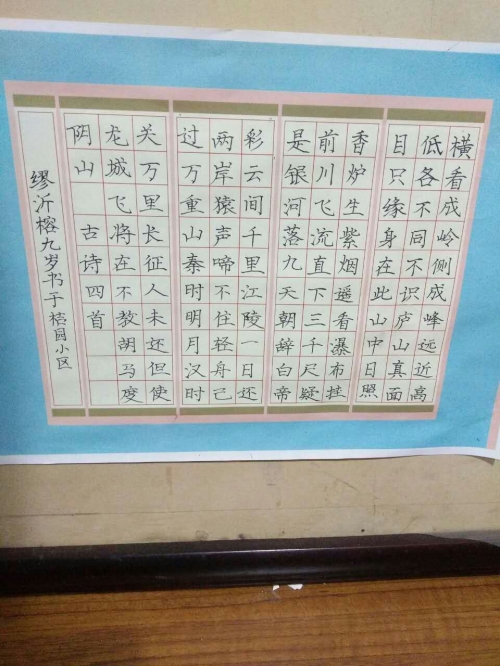 横看成岭侧成峰远近高
低各不同不识庐山真面
目只缘身在此山中日照
香炉生紫烟遥看瀑布挂
前川飞流直下三千尺疑
是银河落九天朝辞白帝
彩云间千里江陵一日还
两岸猿声啼不住轻舟已
过万重山秦时明月汉时
关万里长征人未还但使
龙城飞将在不教胡马度
阴山 古诗四首
缪沂榕九岁书于桔园小区